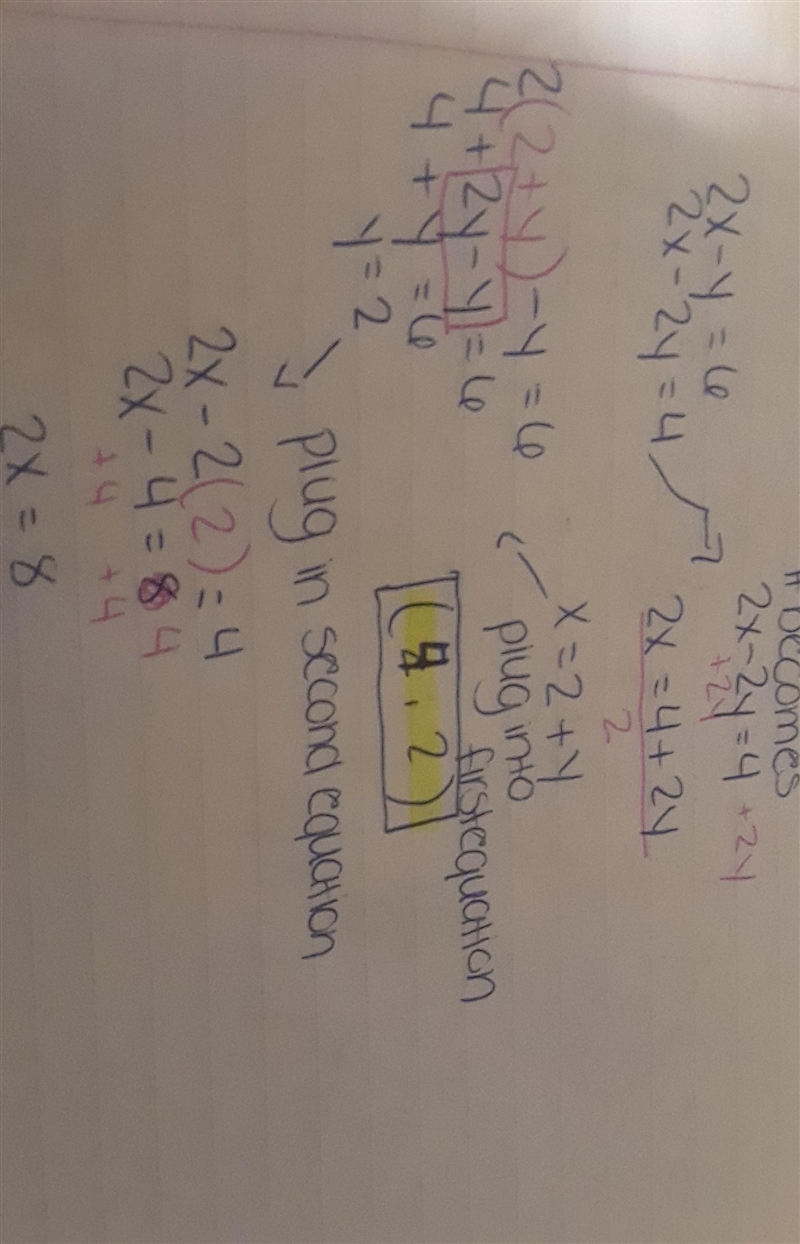 It becomes
2x - y = 6
2x - 2y = 4
2x - 2y = 4
+2y +2y
2x = 4 + 2y
2
x = 2 + y
plug into
first equation
2(2 + y) - y = 6
4 + 2y - y = 6
4 + y = 6
y = 2
(4, 2)
plug in second equation
2x - 2(2) = 4
2x - 4 = 4
+4 +4
2x = 8